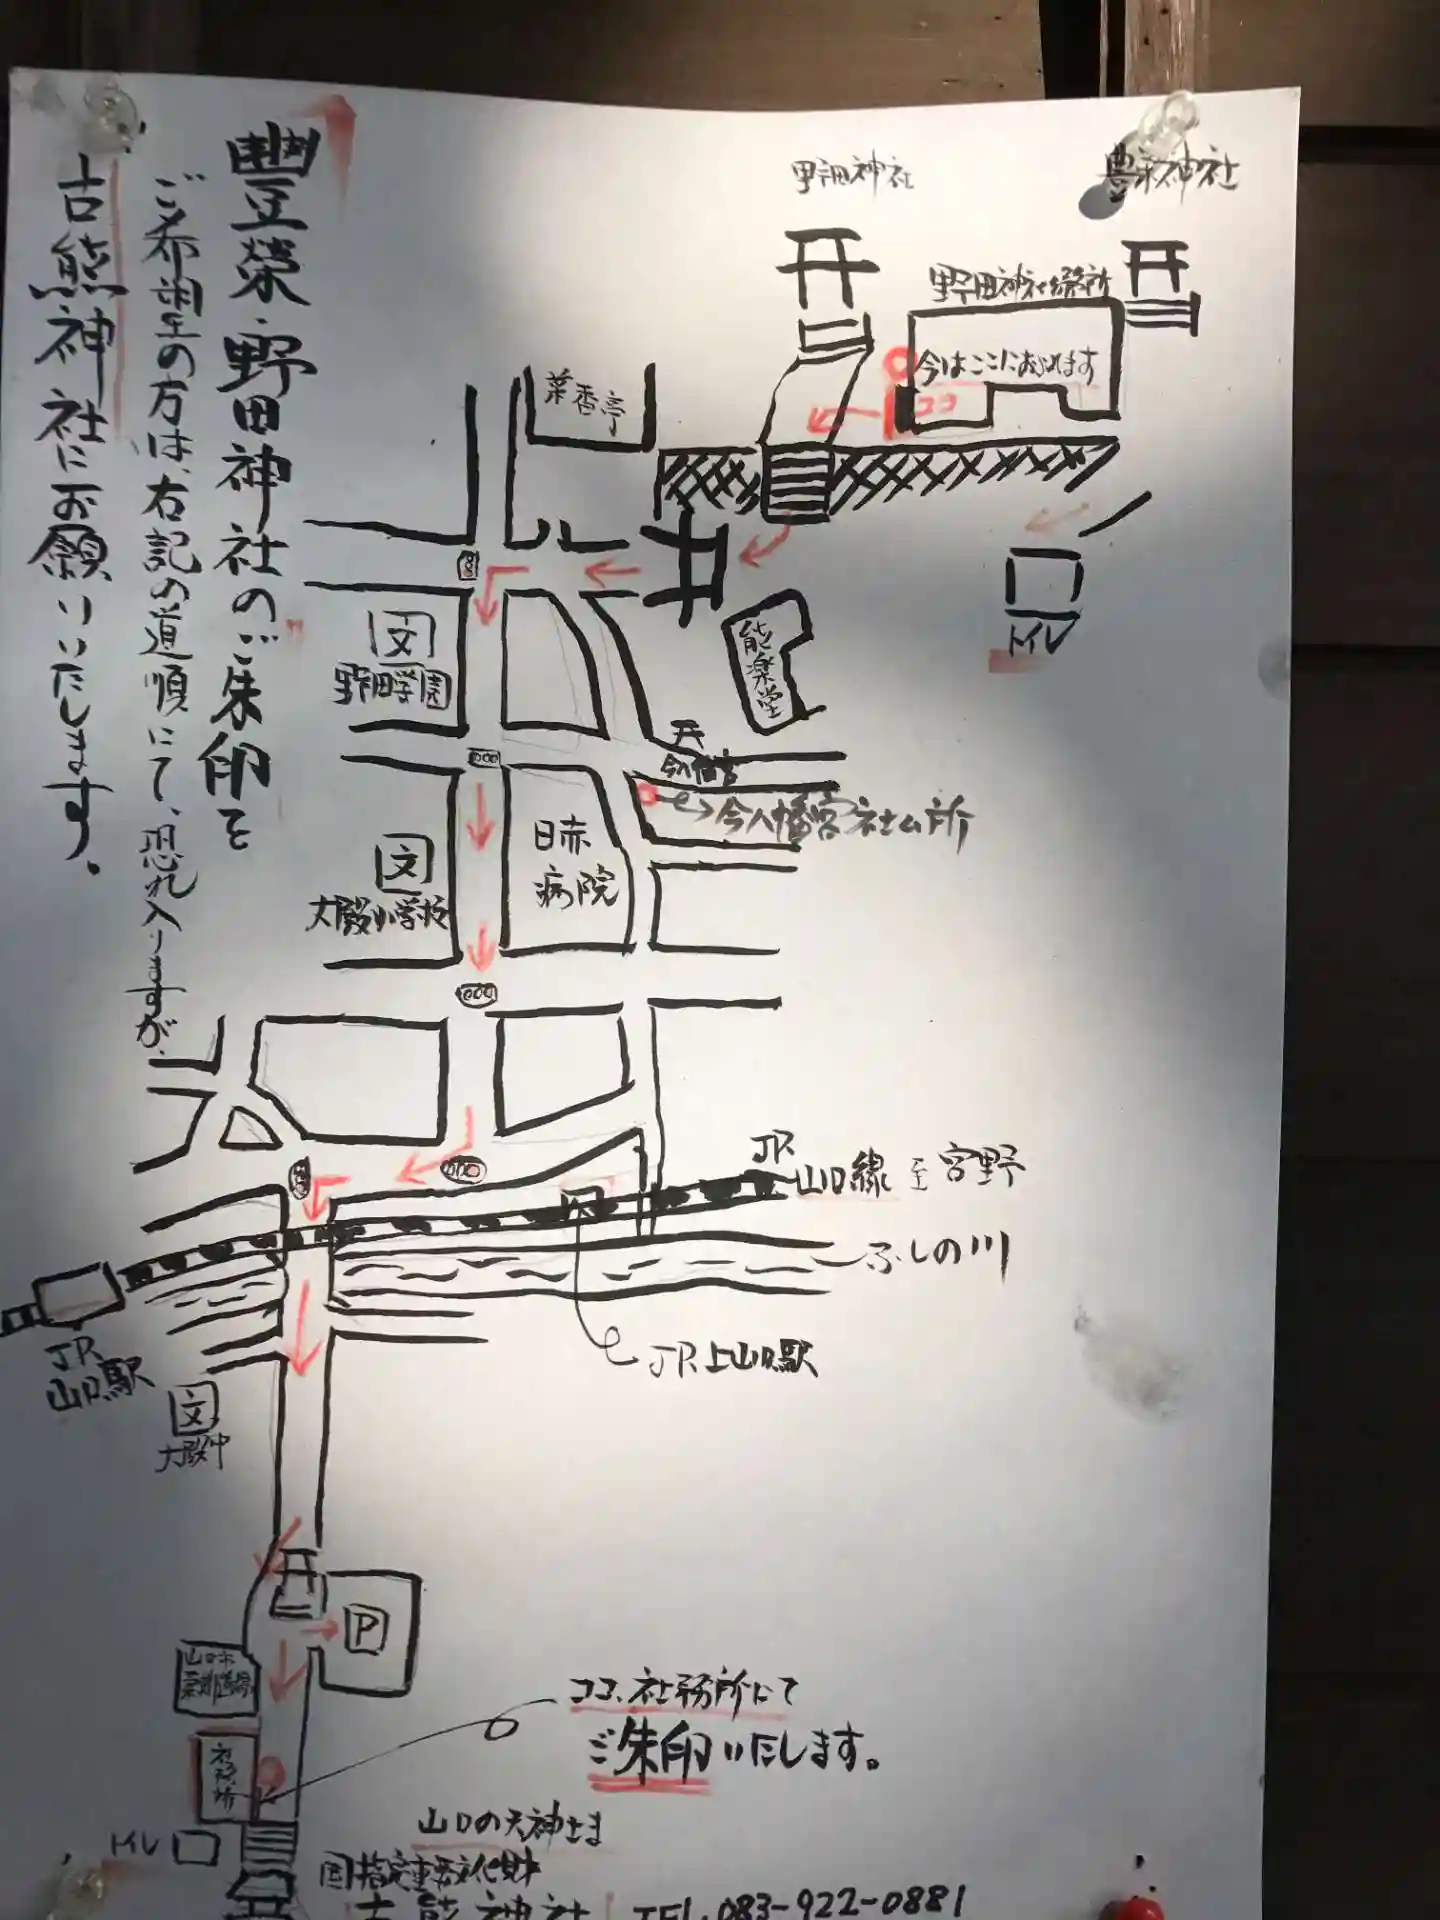 豐榮・野田神社のご朱印を
ご希望の方は、右記の道順にて、恐れ入りますが、
古熊神社にお願いいたします。
豊栄神社
野田神社
野田神社総社
今はここにおられます
ココ
菜香亭
トイレ
能楽堂
文
野田学園
今八幡宮
今八幡宮社ム所
文
大殿小学校
日赤
病院
JR
山口線 至宮野
ふしの川
JR上山口駅
JR
山口駅
文
大殿中
P
山口市
ココ、社務所にて
ご朱印いたします。
社務所
トイレ
山口の天神さま
国指定重要文化財
古熊神社 TEL.083-922-0881